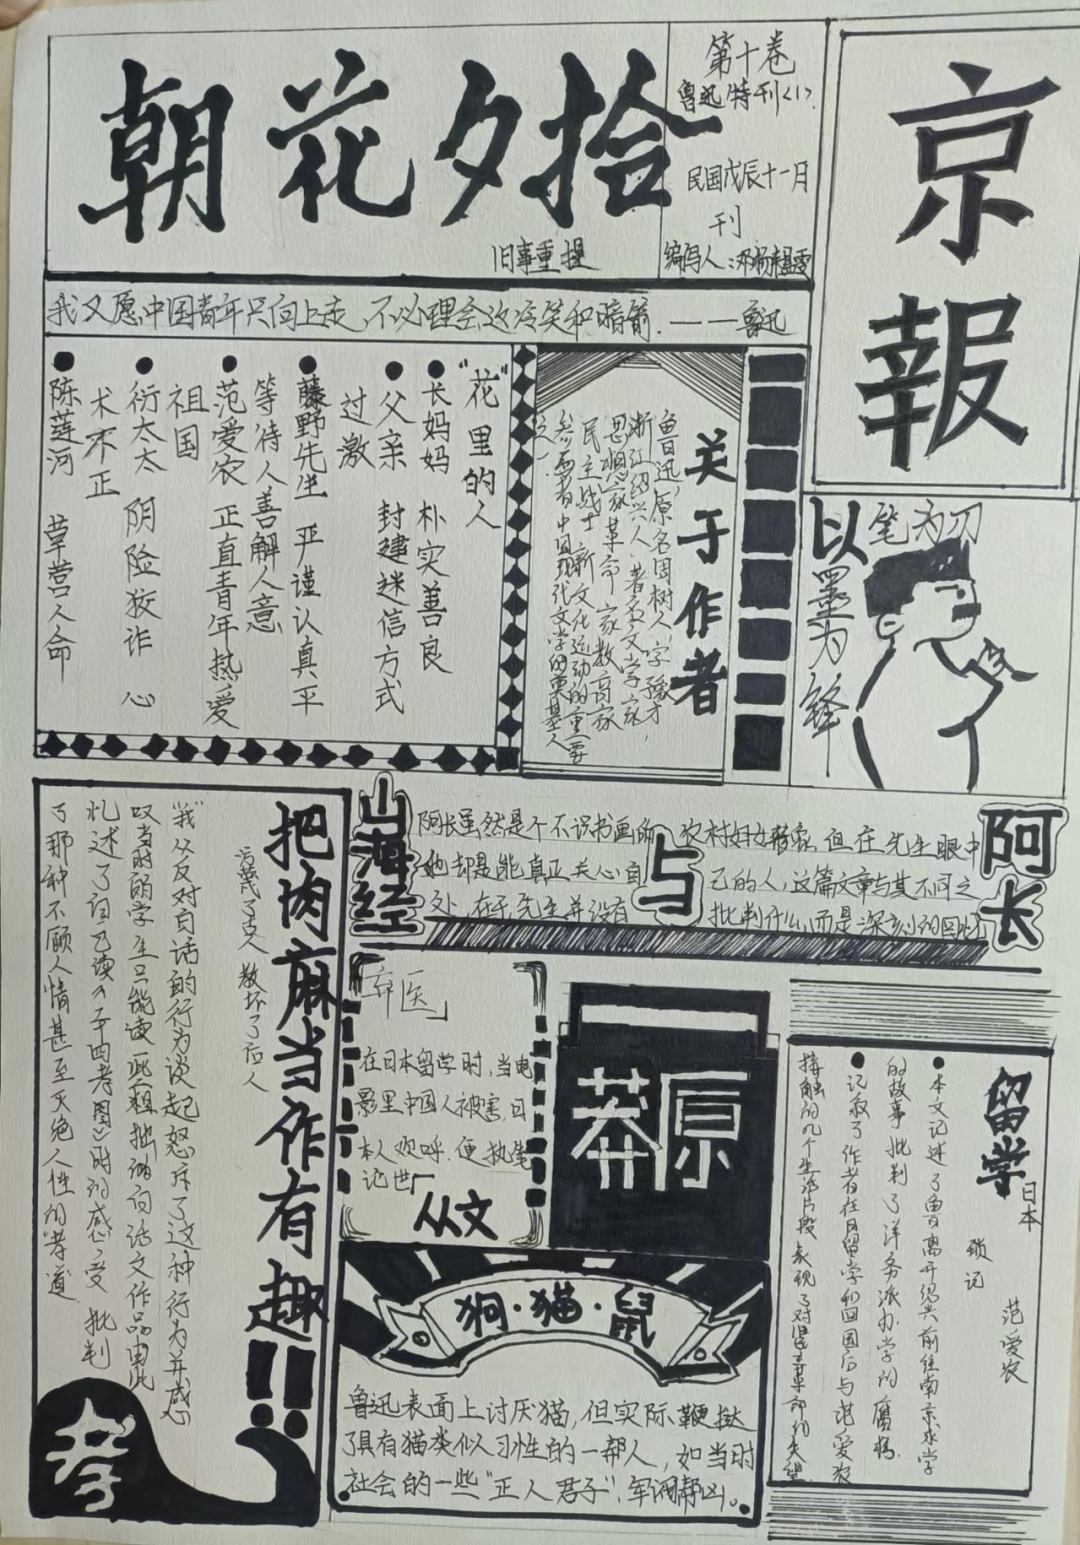 朝花夕拾
旧事重提
第十卷
鲁迅特刊<1>.
民国戊辰十一月
刊
编写人:
京
報
我又愿中国青年只向上走,不必理会这冷笑和暗箭.——鲁迅
"花"里的人
●长妈妈 朴实善良
●父亲 封建迷信方式
过激
●藤野先生 严谨认真平
等待人善解人意
●范爱农 正直青年热爱
祖国
●衍太太 阴险狡诈 心
术不正
●陈莲河 草营人命
关于作者
鲁迅,原名周树人,字豫才,
浙江绍兴人,著名文学家,
思想家革命家教育家
民主战士,新文化运动的重要
参与者中国现代文学的奠基人
之一
以笔为刃
墨为锋
山海经
与
阿长
阿长虽然是个不识书画的农村妇女
但在先生眼中
她却是能真正关心自己的人,这篇文章与其不同之
处,在于先生并没有批判什么,而是深刻的回忆
把肉麻当作有趣!!
污蔑了古人 教坏了后人
"我"从反对白话的行为谈起怒斥了这种行为并感
叹当时的学生只能读此粗拙的白话文作品由此
札述了自己读《二十四孝图》时的感受 批判
了那种不顾人情甚至灭绝人性的"孝道
孝
「弃医」
在日本留学时,当电
影里中国人被害,日
本人欢呼.便执笔
记世
从文
莽原
留学
日本
锁记
范爱农
●本文记述了鲁迅离开绍兴前往南京求学
的故事 批判了洋务派办学的腐朽.
●记叙了作者在日留学和回国后与范爱农
接触的几个生活片段 表现了对
狗·猫·鼠
鲁迅表面上讨厌猫,但实际鞭挞
了具有猫类似人习性的一帮人,如当时
社会的一些"正人君子",军阀帮凶。